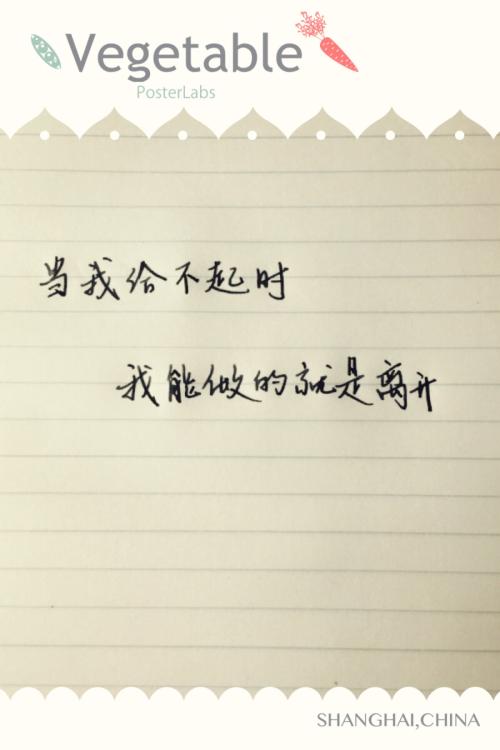 Vegetable
PosterLabs
当我给不起时
我能做的就是离开
SHANGHAI,CHINA